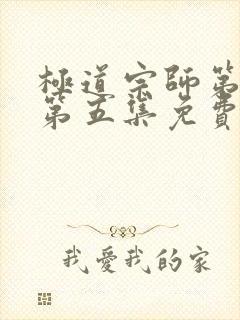 極道宗師第
第五集免費
我愛我的家